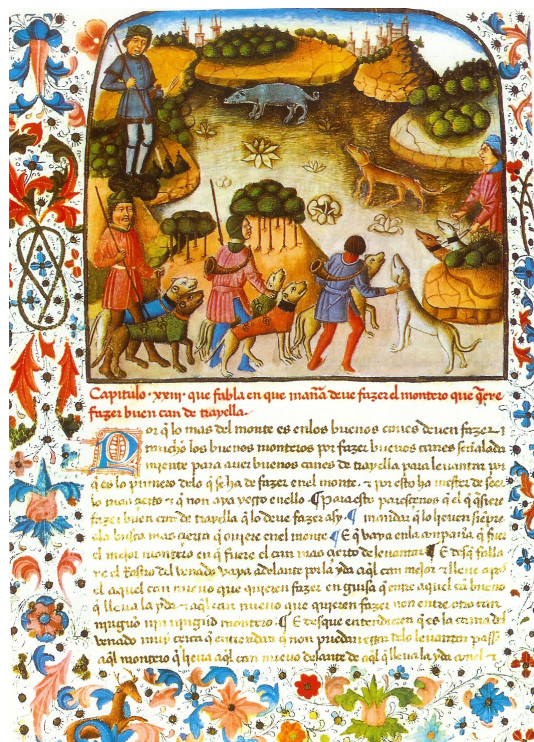 Capitulo · xxiij · que fabla en que mañ̃a deue fazer el montero que q̃ere
fazer buen can de trayella ·
Por q̃ lo mas del monte es enlos buenos canes deuen fazer
mucho los buenos monteros por fazer buenos canes señalada
miente para auer buenos canes de trayella para leuantar por
q̃ es lo primero delo q̃ se ha de fazer enel monte · ⁊ por esto ha mester de seer
lo mas çierto ⁊ q̃ non aya yerro enello ¶ Para esto paresçenos q̃ el q̃ q̃siere
fazer buen can de trayella q̃ lo deue fazer asy ¶ mandar q̃ lo lieuen sienpre
ala busca mas çierta q̃ ouiere enel monte ¶ E q̃ vaya enla conpañia q̃ fuere
el mejor montero en q̃ fuere el can mas çierto de leuantar ¶ E desq̃ falla
re el Rostro del venado vaya adelante por la yda aq̃l can mejor ⁊ lieue apos
el aquel can nueuo que quieren fazer en guisa q̃ entre aquel cã bueno
q̃ lieua la yda ⁊ aq̃l can nueuo que quieren fazer non entre otro can
ninguno nin ningũd montero · ¶ E desque entendieren q̃ es la cama del
venado muy çerca q̃ entiendan q̃ non puedan errar delo leuantar passe
aq̃l montero q̃ lieua aq̃l can nueuo delante de aq̃l q̃ lieua la yda conel ⁊